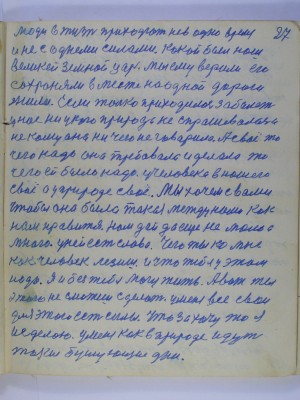 27
люди в жизнь приходют не в одно время
и не с одними силами. Какой был наш
великой земной цар. Мы ему верили его
сохраняли вместе на одной дороги
жили. Если только приходилось заболеть
у нас ни у кого природа не спрашивалась
не кому она ничего не говарила. А свое то
чего надо она требовала и делала то
чего ей было надо. у человека в нашего
своё а у природе своё. Мы хочем с вами
чтобы она была такая между нами как
нам нравится. Нам дай да еще не мало а
много. у ней есть слово. Чего ты ко мне
как человек лезиш. и что тебе у этом
надо. Я и без тебя могу жить. А вот ты
этого не сможеш сделать. у меня все свои
для этого есть силы. Что захочу то я
и сделаю. у меня как в природе идут
такие бушующие дни.